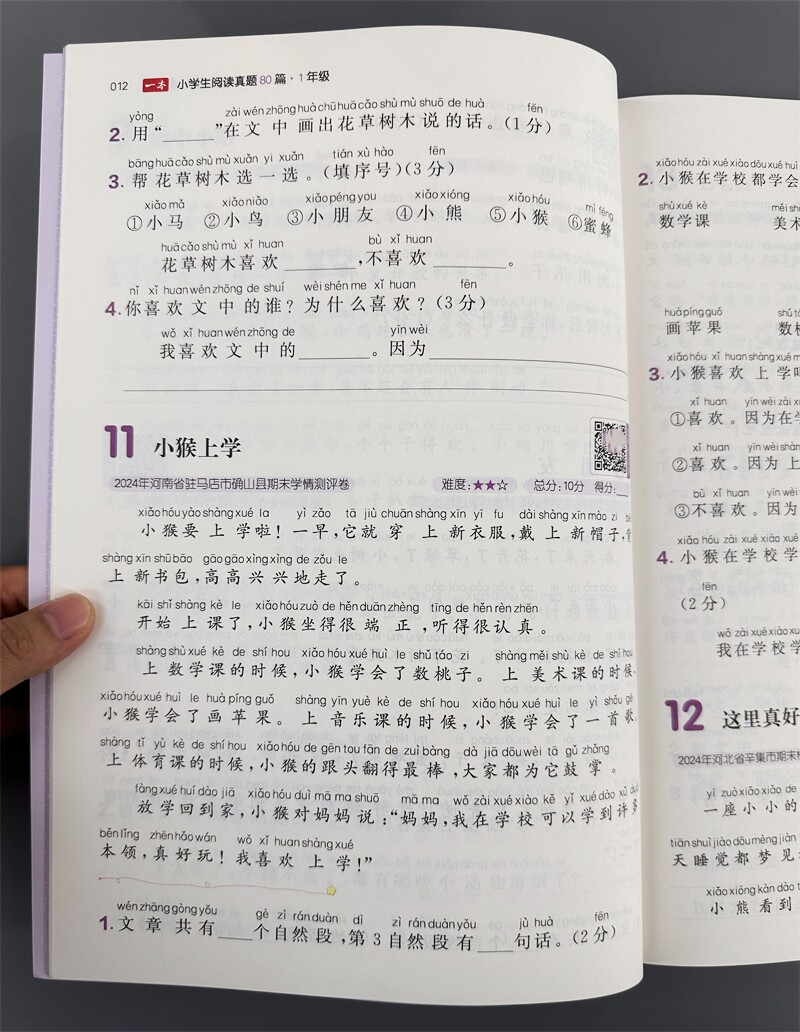 012 一本 小学生阅读真题80篇·1年级
yòng zài wén zhōng huà chū huā cǎo shù mù shuō de huà fēn
2. 用“______”在文中画出花草树木说的话。(1分)
bāng huā cǎo shù mù xuǎn yi xuǎn tián xù hào fēn
3. 帮花草树木选一选。(填序号)(3分)
xiǎo mǎ xiǎo niǎo xiǎo péng you xiǎo xióng xiǎo hóu mì fēng
①小马 ②小鸟 ③小朋友 ④小熊 ⑤小猴 ⑥蜜蜂
huā cǎo shù mù xǐ huan bù xǐ huan
花草树木喜欢________,不喜欢________。
nǐ xǐ huan wén zhōng de shuí wèi shén me xǐ huan fēn
4. 你喜欢文中的谁?为什么喜欢?(3分)
wǒ xǐ huan wén zhōng de yīn wèi
我喜欢文中的________。因为
11 小猴上学
2024年河南省驻马店市确山县期末学情测评卷 难度:★★☆ 总分:10分 得分:
xiǎo hóu yào shàng xué la yì zǎo tā jiù chuān shàng xīn yī fu dài shàng xīn mào zi
小猴要上学啦!一早,它就穿上新衣服,戴上新帽子,
shàng xīn shū bāo gāo gāo xìng xìng de zǒu le
上新书包,高高兴兴地走了。
kāi shǐ shàng kè le xiǎo hóu zuò de hěn duān zhèng tīng de hěn rèn zhēn
开始上课了,小猴坐得很端正,听得很认真。
shàng shù xué kè de shí hou xiǎo hóu xué huì le shǔ táo zi shàng měi shù kè de shí hou
上数学课的时候,小猴学会了数桃子。上美术课的时候,
xiǎo hóu xué huì le huà píng guǒ shàng yīn yuè kè de shí hou xiǎo hóu xué huì le yì shǒu gē
小猴学会了画苹果。上音乐课的时候,小猴学会了一首歌。
shàng tǐ yù kè de shí hou xiǎo hóu de gēn tou fān de zuì bàng dà jiā dōu wèi tā gǔ zhǎng
上体育课的时候,小猴的跟头翻得最棒,大家都为它鼓掌。
fàng xué huí dào jiā xiǎo hóu duì mā ma shuō mā ma wǒ zài xué xiào kě yǐ xué dào xǔ duō
放学回到家,小猴对妈妈说:“妈妈,我在学校可以学到许多
běn lǐng zhēn hǎo wán wǒ xǐ huan shàng xué
本领,真好玩!我喜欢上学!”
wén zhāng gòng yǒu gè zì rán duàn dì zì rán duàn yǒu jù huà fēn
1. 文章共有____个自然段,第3自然段有____句话。(2分)
xiǎo hóu zài xué xiào dōu xué huì
2. 小猴在学校都学会
shù xué kè měi sh
数学课 美术
huà píng guǒ shǔ t
画苹果 数桃
xiǎo hóu xǐ huan shàng xué m
3. 小猴喜欢上学吗
xǐ huan yīn wèi zài x
①喜欢。因为在学
xǐ huan yīn wèi
②喜欢。因为上
bù xǐ huan yīn wèi
③不喜欢。因为
xiǎo hóu zài xué xiào xué
4. 小猴在学校学
fēn
(2分)
wǒ zài xué xiào x
我在学校学
12 这里真好
2024年河北省辛集市期末
yí zuò xiǎo xiǎo de
一座小小的
tiān shuì jiào dōu mèng jiàn
天睡觉都梦见
xiǎo xióng kàn dào
小熊看到